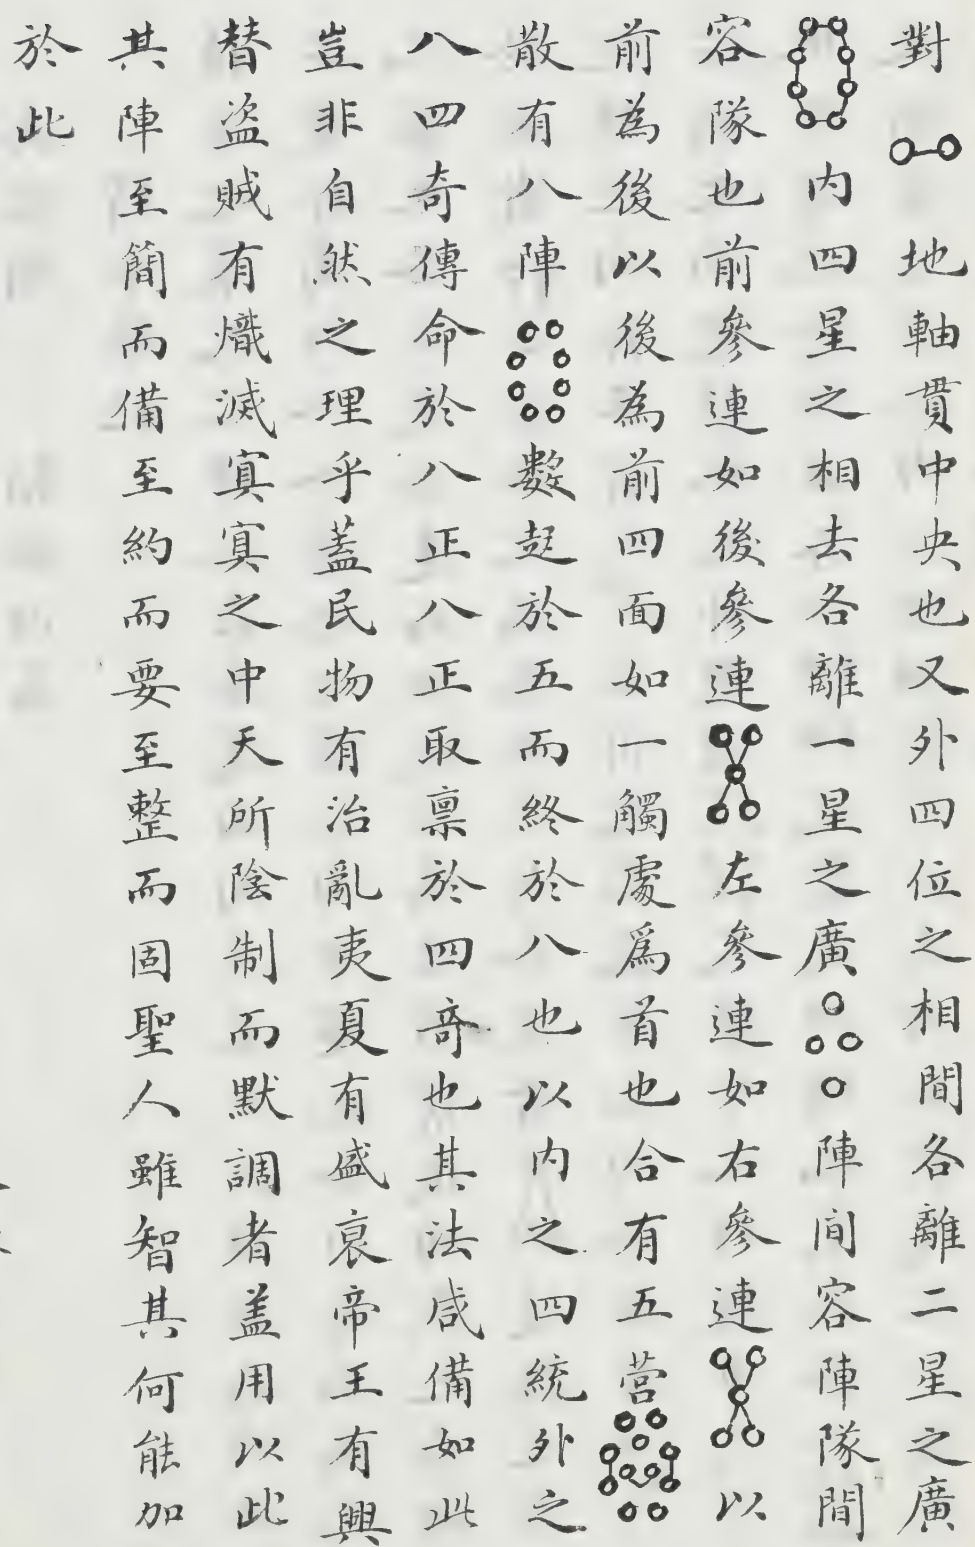 對 地軸貫中央也又外四位之相間各離二星之廣
内四星之相去各離一星之廣 陣间容陣隊間
容隊也前參連如後參連 左參連如右參連 以
前為後以後為前四面如一觸處爲首也合有五営
散有八陣 數起於五而終於八也以内之四統外之
八四奇傳命於八正八正取禀於四奇也其法咸備如此
豈非自然之理乎蓋民物有治亂夷夏有盛衰帝王有興
替盗賊有熾滅寘寘之中天所陰制而默調者盖用以此
其陣至簡而備至約而要至整而固聖人雖智其何能加
於此